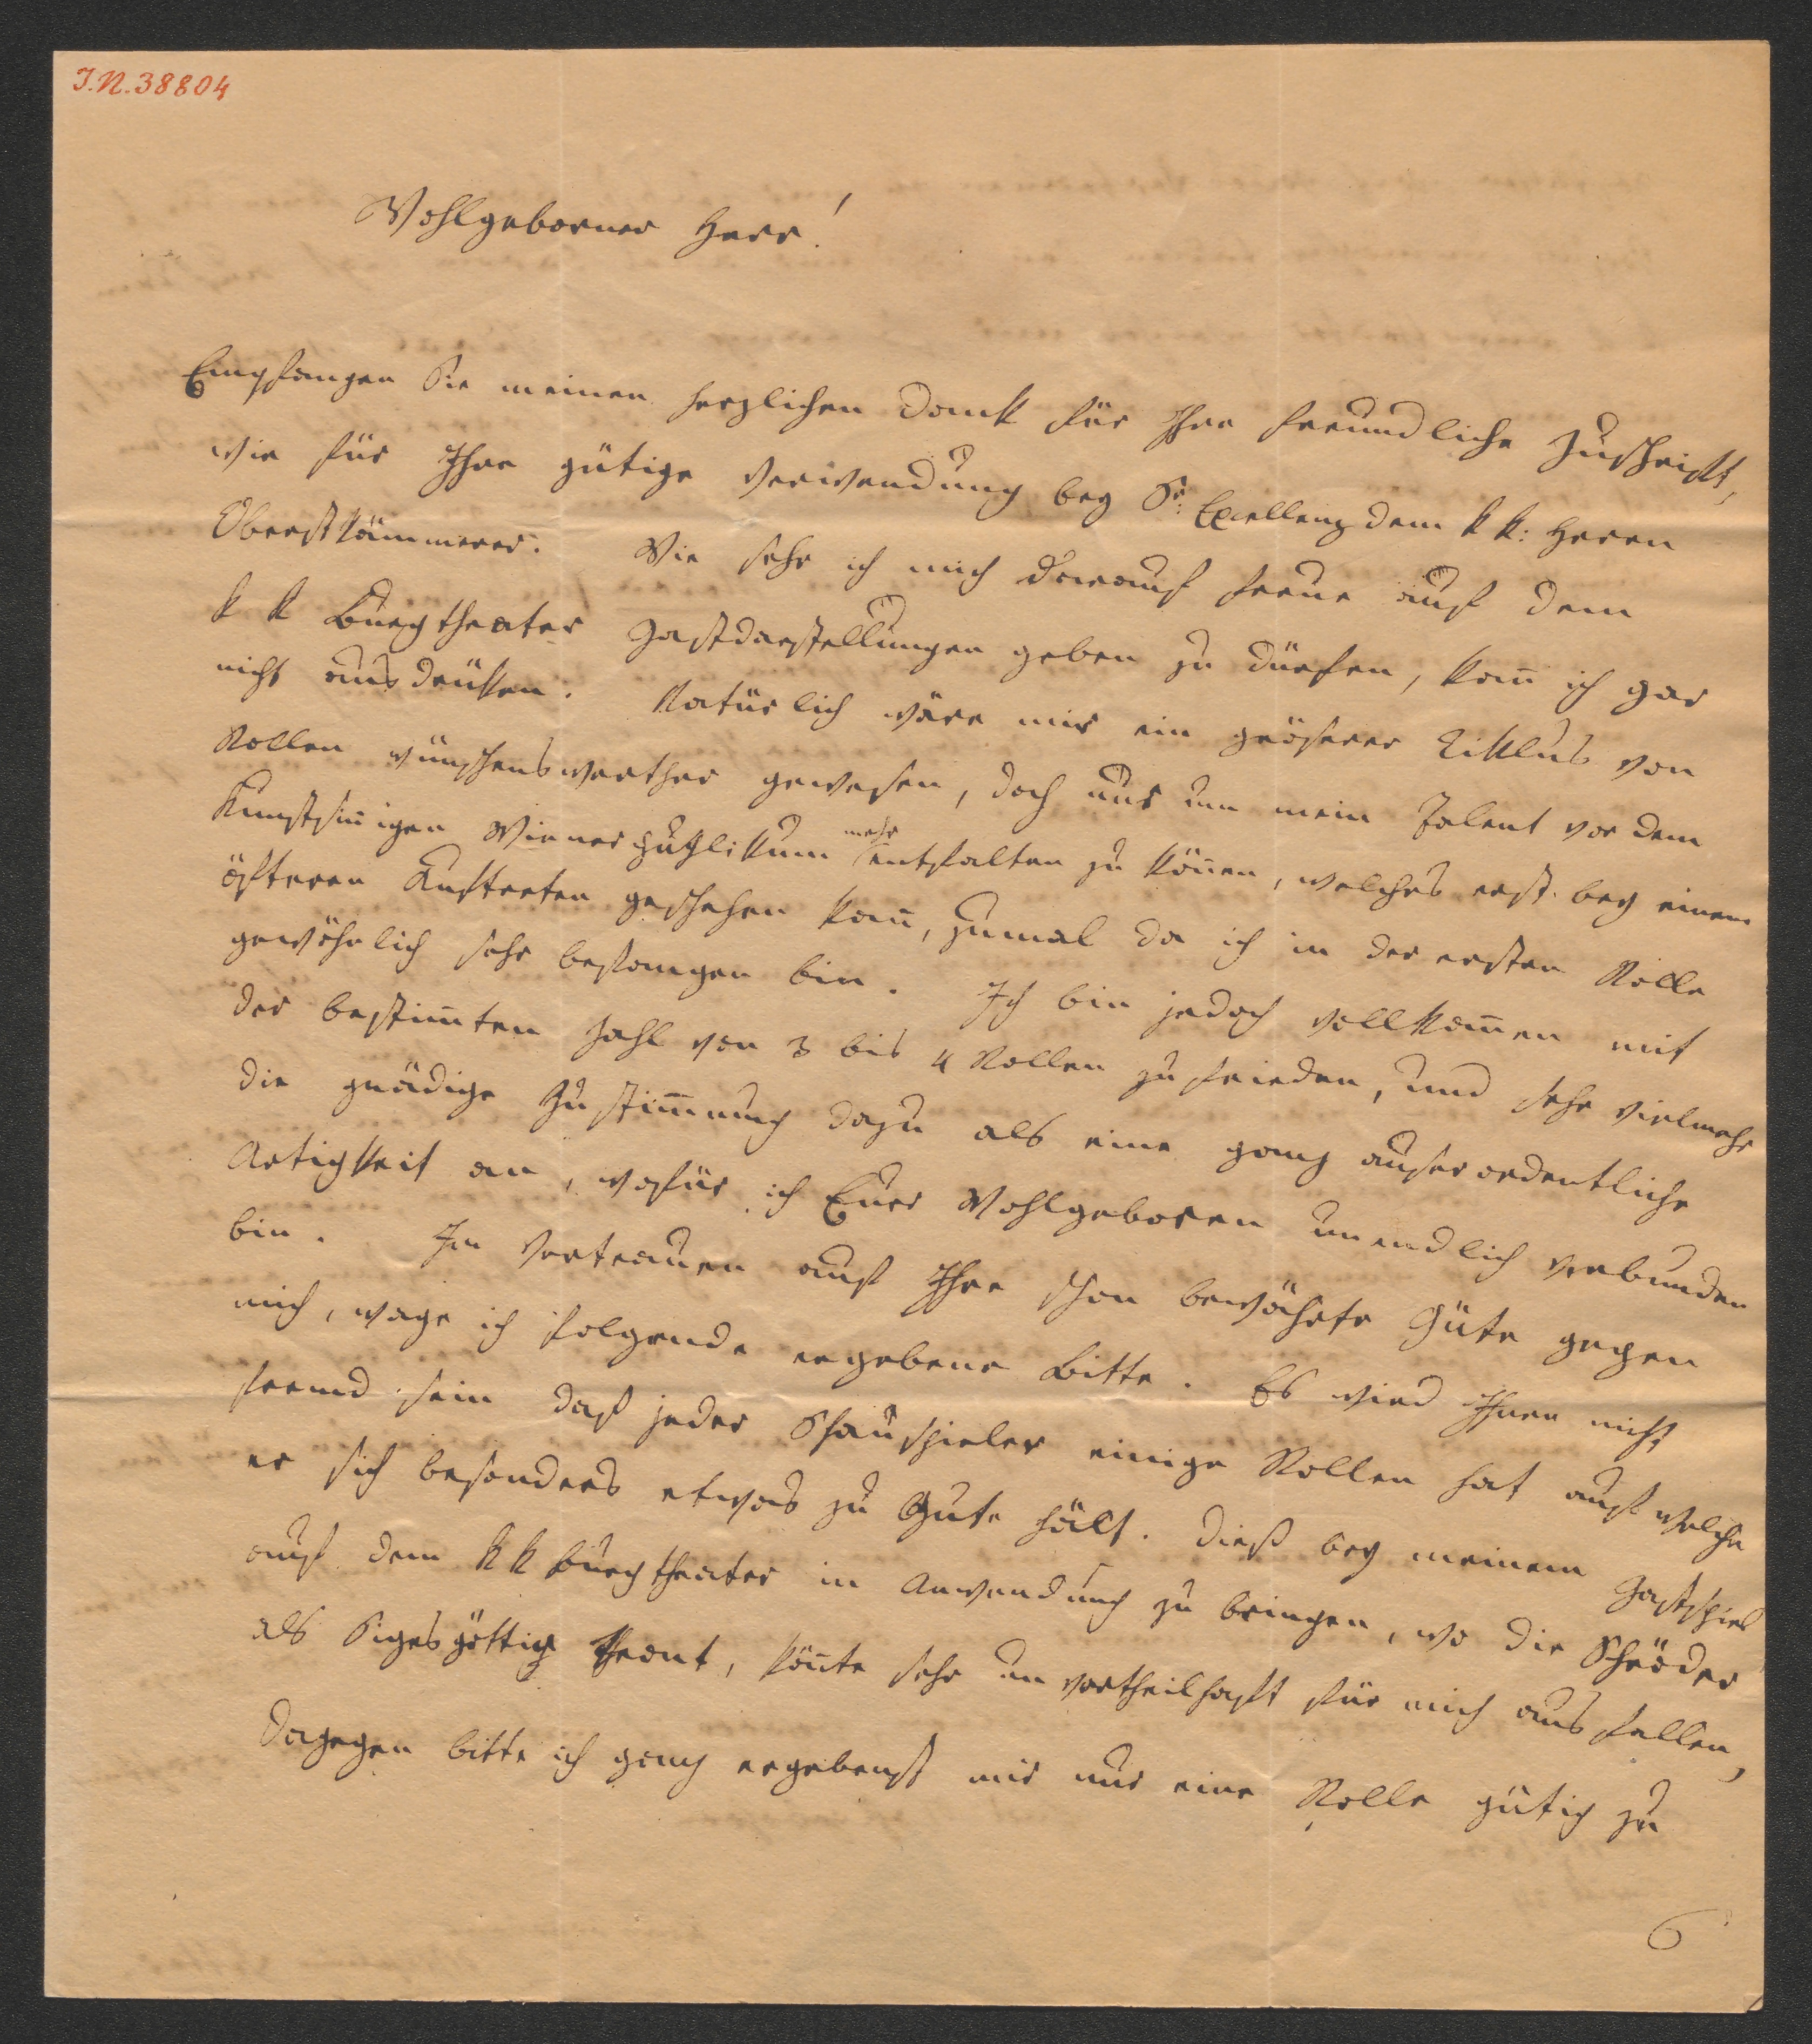 I.N. 38804
Wohlgeborner Herr!
Empfangen Sie meinen herzlichen Dank für Ihre freundliche Zuschrift,
wie für Ihre gütige Verwendung bey Sr: Excellenz dem k k: Herrn
Oberstkämmerer. Wie sehr ich mich darauf freue auf dem
k k Burgtheater Gastdarstellungen geben zu dürfen, kan̅ ich gar
nicht ausdrüken. Natürlich wäre mir ein größerer Ziklus von
Rollen wünschenswerther gewesen, doch nur um mein Talent vor dem
Kunstsin̅igen Wiener Publikum mehr entfalten zu kön̅en, welches erst bey einem
öfteren Auftreten geschehen kan̅, zumal da ich in der ersten Rolle
gewöhnlich sehr befangen bin. Ich bin jedoch vollkom̅en mit
der bestim̅ten Zahl von 3 bis 4 Rollen zufrieden, und sehe vielmehr
die gnädige Zustim̅ung dazu als eine ganz außerordentliche
Artigkeit an, wofür ich Euer Wohlgeboren unendlich verbunden
bin. Im Vertrauen auf Ihre schon bewährte Güte gegen
mich, wage ich folgende ergebene Bitte. Es wird Ihnen nicht
fremd sein daß jeder Schauspieler einige Rollen hat auf welche
er sich besonders etwas zu Gute hält. Dieß bey meinem Gastspiel
auf dem k k Burgtheater in Anwendung zu bringen, wo die Schröder
als Sigesgöttin thront, kön̅te sehr unvortheilhaft für mich ausfallen,
dagegen bitte ich ganz ergebenst mir nur eine Rolle gütig zu